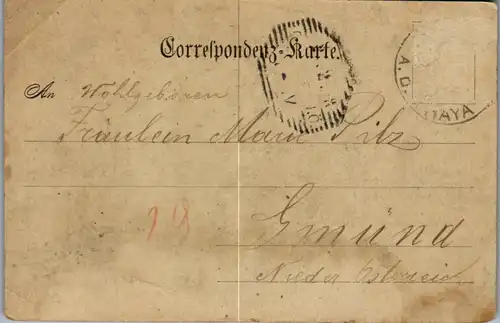 Correspondenz-Karte.
An Wohlgeboren
Fräulein Marie Pilz
18
Gmünd
Nieder Österreich
A. G.
DAYA